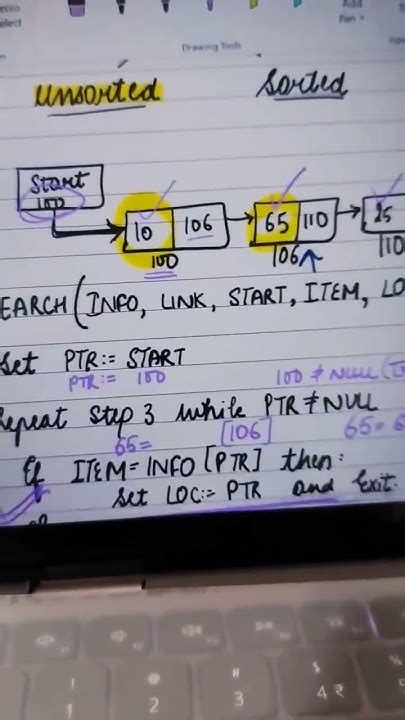 Drawing Tools
Add
Pen
unsorted Sorted
Start
100
10 106 65 110
100 106 110
EARCH (INFO, LINK, START, ITEM, LO
Set PTR:= START
PTR:= 100 100 ≠ NULL (T
Repeat Step 3 while PTR≠NULL
65= [106] 65=6
If ITEM=INFO [PTR] then:
Set LOC:= PTR and Exit.
@ # $ ₹
1 2 3 4